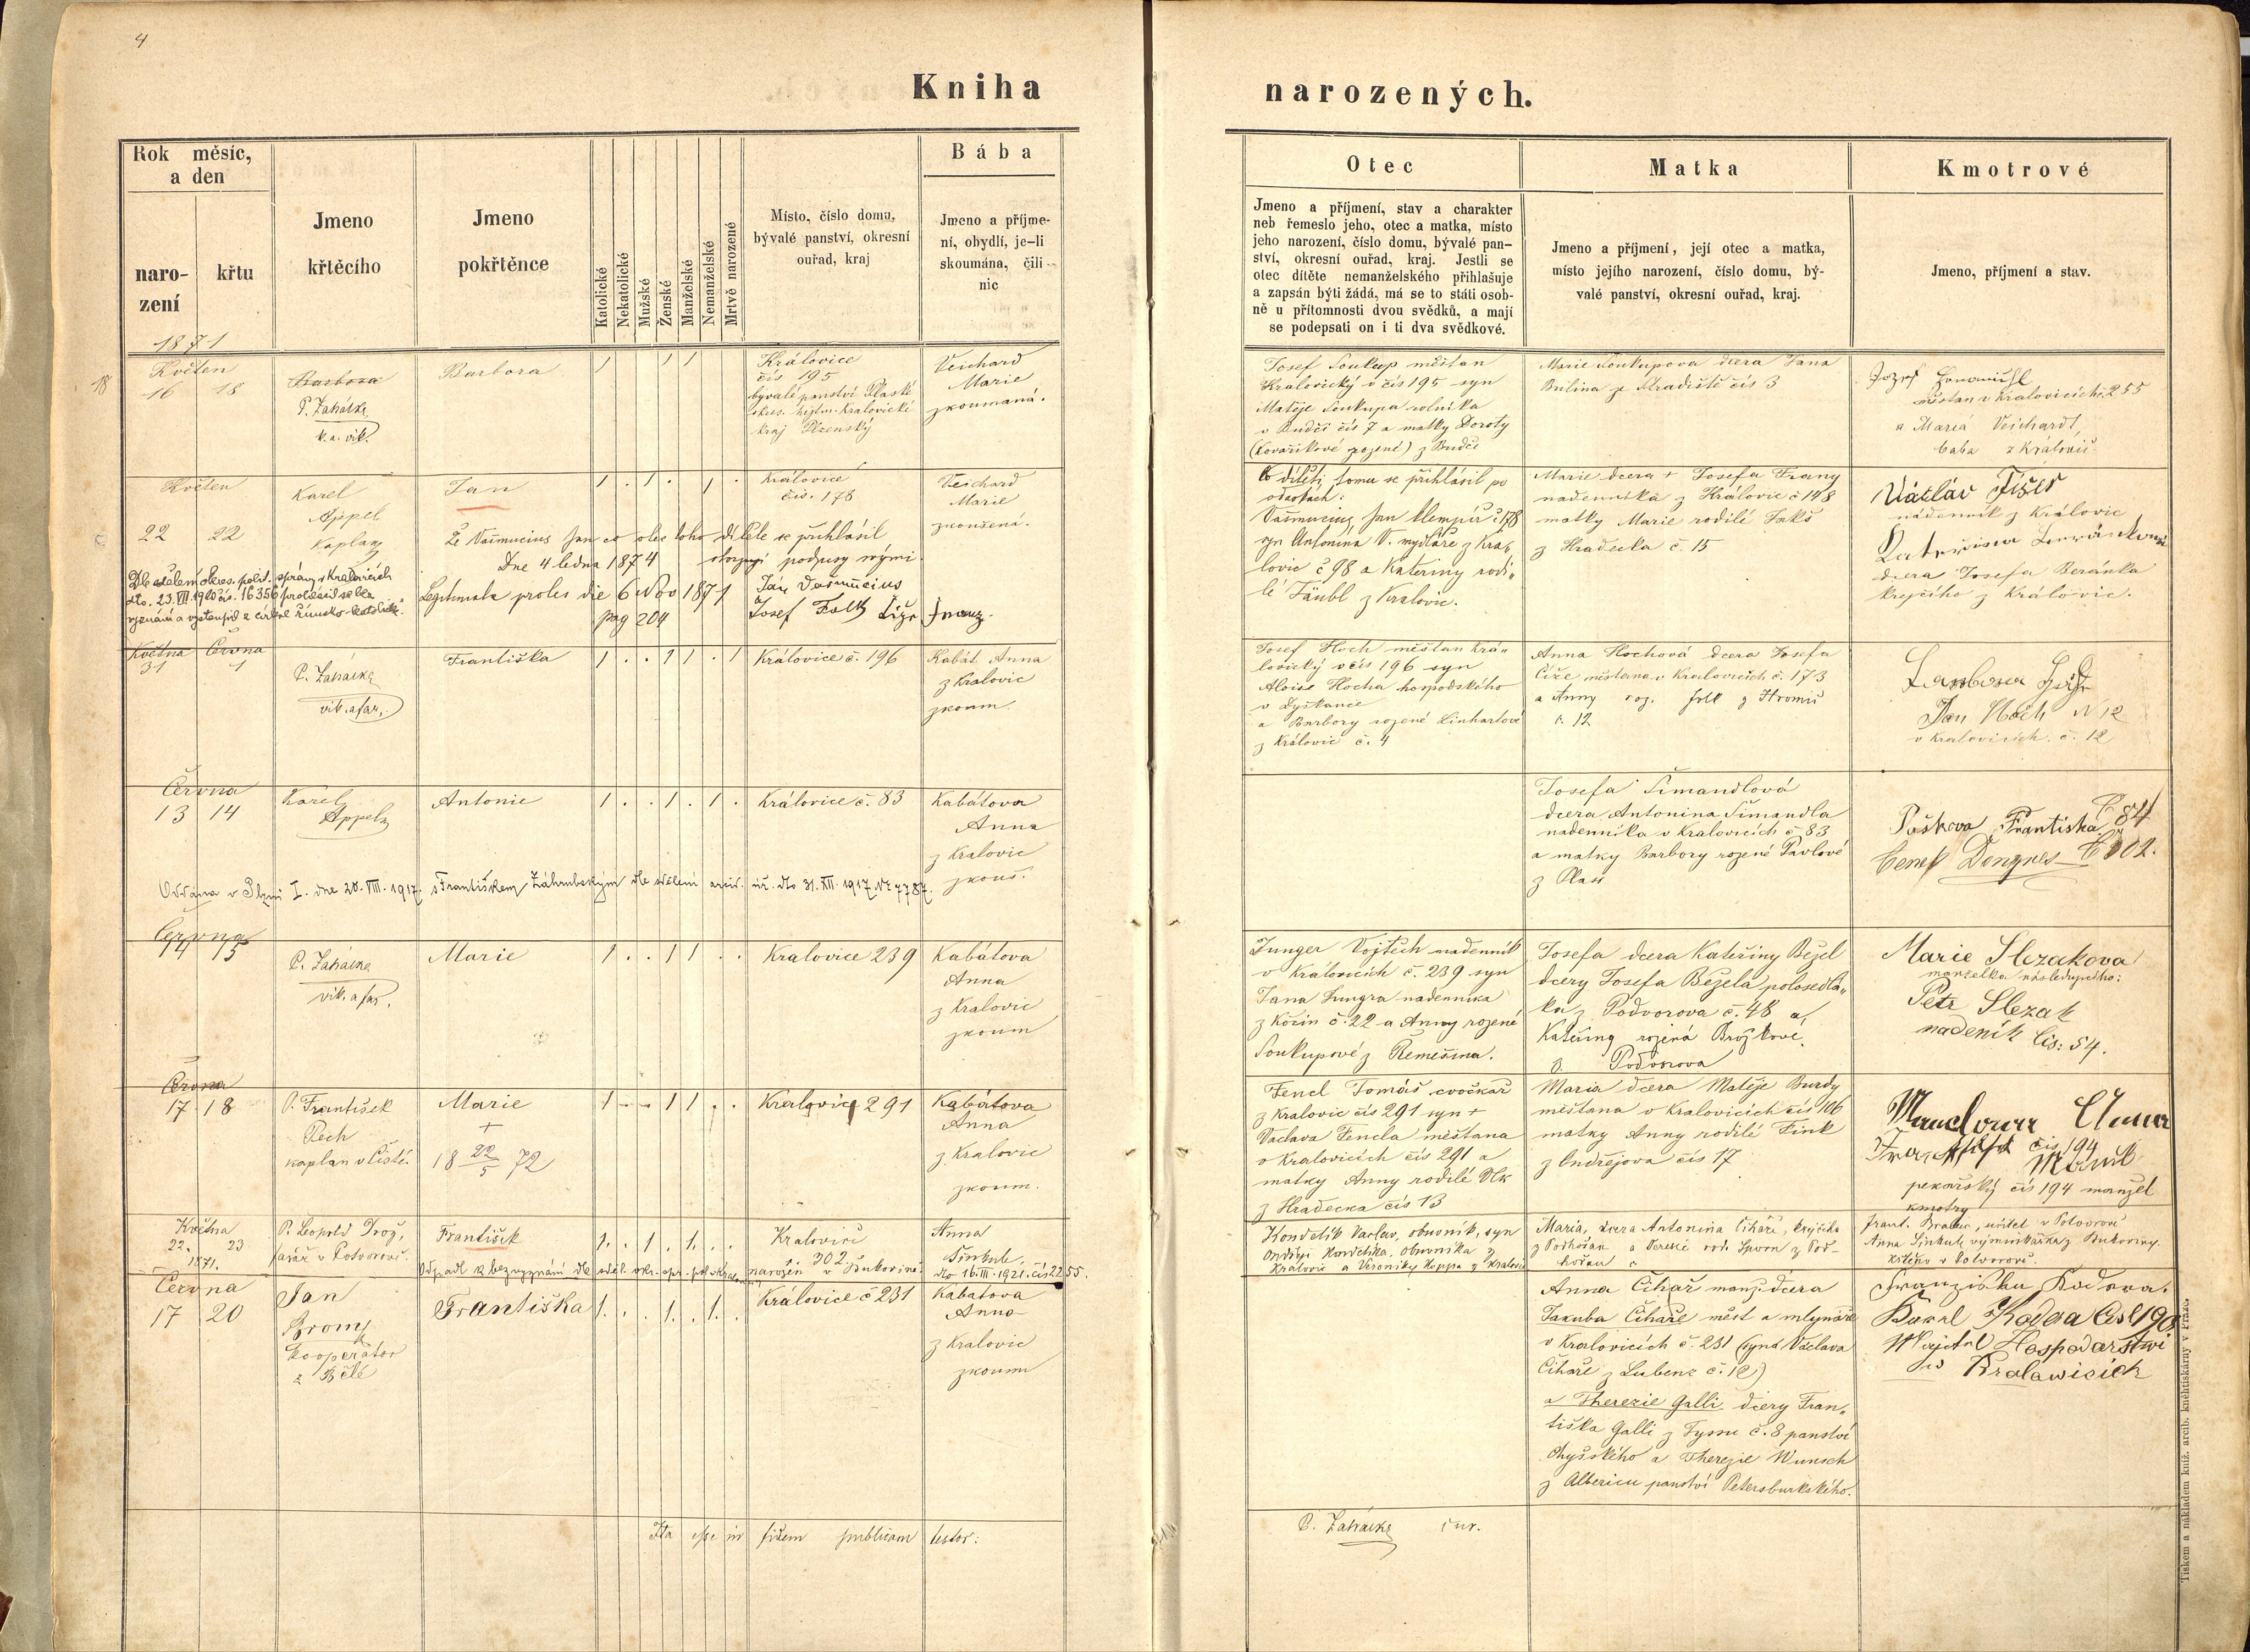 4
Kniha
narozených.
Rok měsíc,
a den
naro-
zení
křtu
Jmeno
křtěcího
Jmeno
pokřtěnce
Katolické
Nekatolické
Mužské
Ženské
Manželské
Nemanželské
Mrtvě narozené
Místo, číslo domu,
bývalé panství, okresní
ouřad, kraj
Bába
Jmeno a příjme-
ní, obydlí, je-li
skoumána, čili
nic
Otec
Jmeno a příjmení, stav a charakter
neb řemeslo jeho, otec a matka, místo
jeho narození, číslo domu, bývalé pan-
ství, okresní ouřad, kraj. Jestli se
otec dítěte nemanželského přihlašuje
a zapsán býti žádá, má se to státi osob-
ně u přítomnosti dvou svědků, a mají
se podepsati on i ti dva svědkové.
Matka
Jmeno a příjmení, její otec a matka,
místo jejího narození, číslo domu, bý-
valé panství, okresní ouřad, kraj.
Kmotrové
Jmeno, příjmení a stav.
1871
18
Květen
16 18
Barbora
P. Zahálka
k. a. vik.
Barbora
1 1 1
Královice
čís 195
bývalé panství Plaské
okres. hejtm. Kralovické
kraj Plzenský
Veichard
Marie
zkoumaná.
Josef Soukup měštan
Kralovický v čís 195 syn
Matěje Soukupa rolníka
v Budči čís 7 a matky Doroty
(Kovaříkové rozené) z Budče
Marie Soukupova dcera Jana
Bulina ze Hradiště čís 3
Jozef
měštan v Kralovicích č. 255
a Maria Veichardt,
baba z Královic
Květen
22 22
Karel
Appel
Kaplan
Jan
1 . 1 . 1 .
Královice
čís. 178
Veichard
Marie
zkoušená.
Že Vašmucius Jan co otec toho dítěte se přihlásil
Dne 4 ledna 1874 stvrzují podpisy svými
Legitimata proles die 6 Nov 1871
pag 204
Ján Vašmucius
Josef Folk
Franz
Dle sdělení okres. polit. správy v Kralovicích
dto. 23. VII. 1920 čís. 16356 prohlásil se bez
vyznání a vystoupil z církve římsko-katolické.
K dítěti tomu se přihlásil po
odevzdach:
Vašmucius Jan klempíř č 178
syn Antonína V. mydláře z Kra-
lovic č 98 a Kateřiny rodi-
lé Täubl z Kralovic.
Marie dcera + Josefa Frany
nadenníka z Královic č 148
matky Marie rodilé Jakš
z Hradecka č. 15
Václáv Fišer
nádenník z Královic
dcera Josefa Beránka
krejčího z Královic.
Května Června
31 1
P. Zahálka
vik. a far.
Františka
1 . . 1 1 . 1
Královice č. 196
Kabát Anna
z Kralovic
zkoum.
Josef Hoch měštan Krá-
lovický v čís 196 syn
Aloise Hocha hospodského
v Dyštance
a Barbory rozené Linhartové
z Královic č. 4
Anna Hochová dcera Josefa
Číže měštana v Kralovicích č. 173
a Anny roz. Folk z Hromic
č. 12
Jan Hoch N 12
v Kralovicích č. 12
Června
13 14
Karel
Appel
Antonie
1 . . 1 . 1 .
Královice č. 83
Kabátova
Anna
z Kralovic
zkouš.
Oddána v Plzni I. dne 20. VIII. 1917. s Františkem Záhrubským dle sdělení arcid. úř. dto 31. XII. 1917 Nr 7787.
Josefa Šimandlová
dcera Antonina Šimandla
nadenníka v Kralovicích č 83
a matky Barbory rozené Pavlové
z Plass
Paškova Františka Č 84
Čeněk Dongres
Června
14 15
P. Zahálka
vik. a far.
Marie
1 . . 1 1 . .
Kralovice 239
Kabátova
Anna
z Kralovic
zkoum
Junger Vojtěch nadenník
v Královicích č. 239 syn
Jana Jungra nadenníka
z Kořin č. 22 a Anny rozené
Soukupové z Řemešína.
Josefa dcera Kateřiny Bežel
dcery Josefa Bežela polosedlá-
ka z Podvorova č. 48 a
Kateřiny rozená Brožkové
z Podvorova
Marie Slezakova
manželka následujícího:
Petr Slezak
nadeník Čís: 54.
Června
17 18
P. František
Pech
kaplan v Čisté.
Marie
+
18 22/5 72
1 - - 1 1 . .
Kralovice 291
Kabátova
Anna
z Kralovic
zkoum.
Fencl Tomáš cvočkař
z Kralovic čís 291 syn +
Václava Fencla měštana
v Kralovicích čís 291 a
matky Anny rodilé Vlk
z Hradecka čís 13
Maria dcera Matěje Burdy
měštana v Kralovicích čís 106
matky Anny rodilé Fink
z Ondřejova čís 17
Anna
čís 194
pekařský čís 194 manžel
kmotry
Května
22. 23
1871.
P. Leopold Drož,
farář v Potvorově.
František
1. . 1 . 1. . .
Kralovice
302
narozen v Bukovině.
Anna
Šinkule,
Odpadl k bezvyznání dle sděl. okr. spr. pol. v Kralovicích dto 16. III. 1921. čís 2255.
Kondelík Vaclav, obuvník, syn
Ondřeje Kondelíka, obuvníka z
Královic a Veroniky Hoppa z Kralovic
Maria, dcera Antonina Čihaře, krejčího
z Podhořan a Terezie rod. Sporn z Pod-
hořan
Frant. Brabec, učitel v Potvorově
Anna Šinkule, výminkářka z Bukoviny.
Křtěno v Potvorově.
Června
17 20
Jan
Bromy
kooperátor
z Bělé
Františka
1. . . 1. . 1. .
Královice č 231
Kabatova
Anna
z Kralovic
zkoum
Anna Čihař manž. dcera
Jakuba Čihaře mešt a mlynáře
v Kralovicích č. 231 (syna Václava
Čihaře z Lubence č. 12)
a Therezie Galli dcery Fran-
tiška Galli z Tyssu č. 8 panství
Chyšského a Therezie Wunsch
z Albericu panství Petersburkského.
Franziska Kodera.
Karel Kodera Čísl 190
Majitel Hospodařstwi
w Kralawicích
Ita esse in fidem publicam testor:
P. Zahálka cur.
Tiskem a nákladem kníž. arcib. knihtiskárny v Praze.